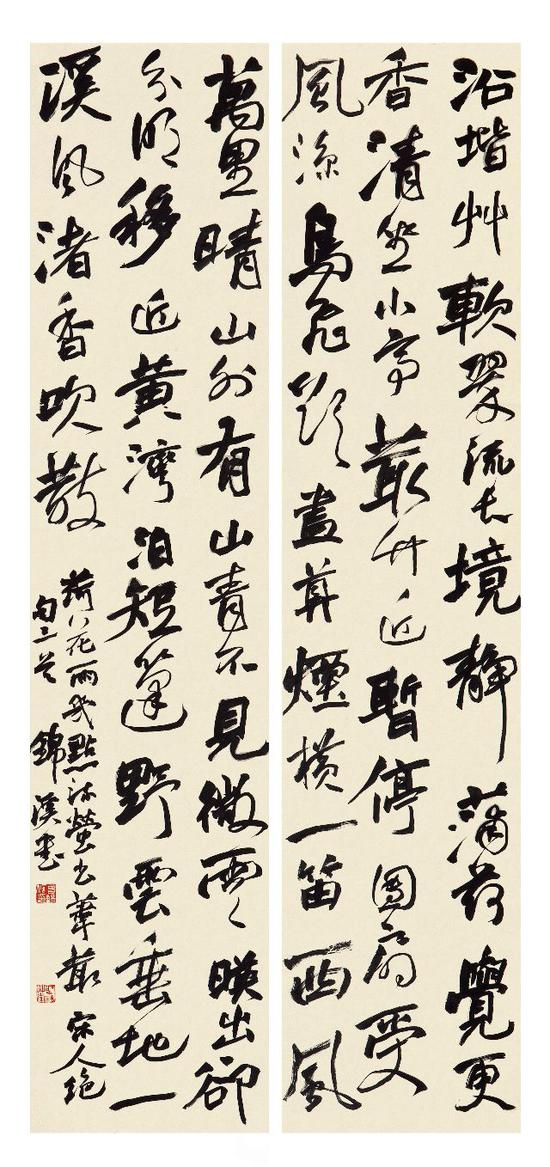 沿堦艸軟翠流長境靜蒲荷覺更
香清坐小亭叢竹近暫停團扇受
風涼鳥飛欲盡莫煙橫一笛西風
萬里晴山外有山青不見微雲映出卻
分明移近黃灣泊短篷野雲垂地一
溪風渚香吹散
荷花雨幾點流螢出葦叢 宋人絕
句三首 錦溪書